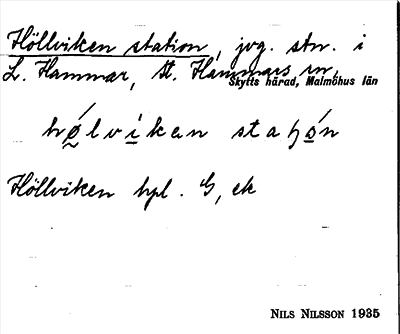 Höllviken station, jvg. stn. i
L. Hammar, St. Hammars sn,
Skytts härad, Malmöhus län
hølvikan staʒón
Höllviken hpl. G, ek
NILS NILSSON 1935